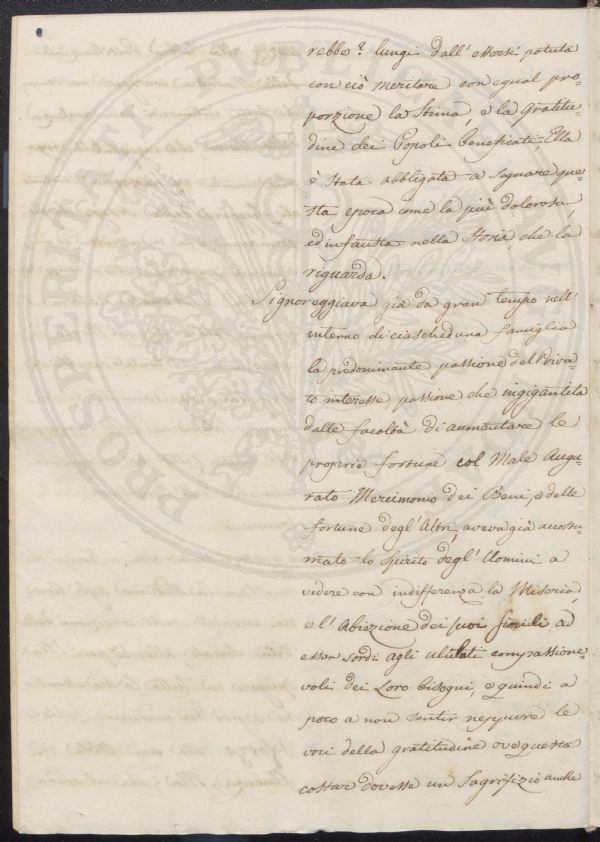 rebbe? lungi dall'essersi potuta
con ciò meritare con egual pro=
porzione la Stima, e la Gratitu=
dine dei Popoli beneficati, Ella
è stata obbligata a segnare que=
sta epoca come la più dolorosa,
ed infausta nella Storia, che la
riguarda.
Signoreggiava già da gran tempo nell'
interno di ciascheduna famiglia
la predominante passione del Priva=
to interesse, passione che ingigantita
dalle facoltà di aumentare le
proprie fortune col Male Augu=
rato Mercimonio dei Beni, e delle
fortune degl'Altri, aveva già accostu=
mato lo spirito degl'Uomini a
vedere con indifferenza la Miseria,
e l'Abiezione dei suoi simili, ad
esser sordi agli ululati compassione=
voli dei Loro bisogni, e quindi a
poco a non sentir neppure le
voci della gratitudine ove questa
costar dovesse un Sagrifizio anche
PROSPERITATI PUBLICAE